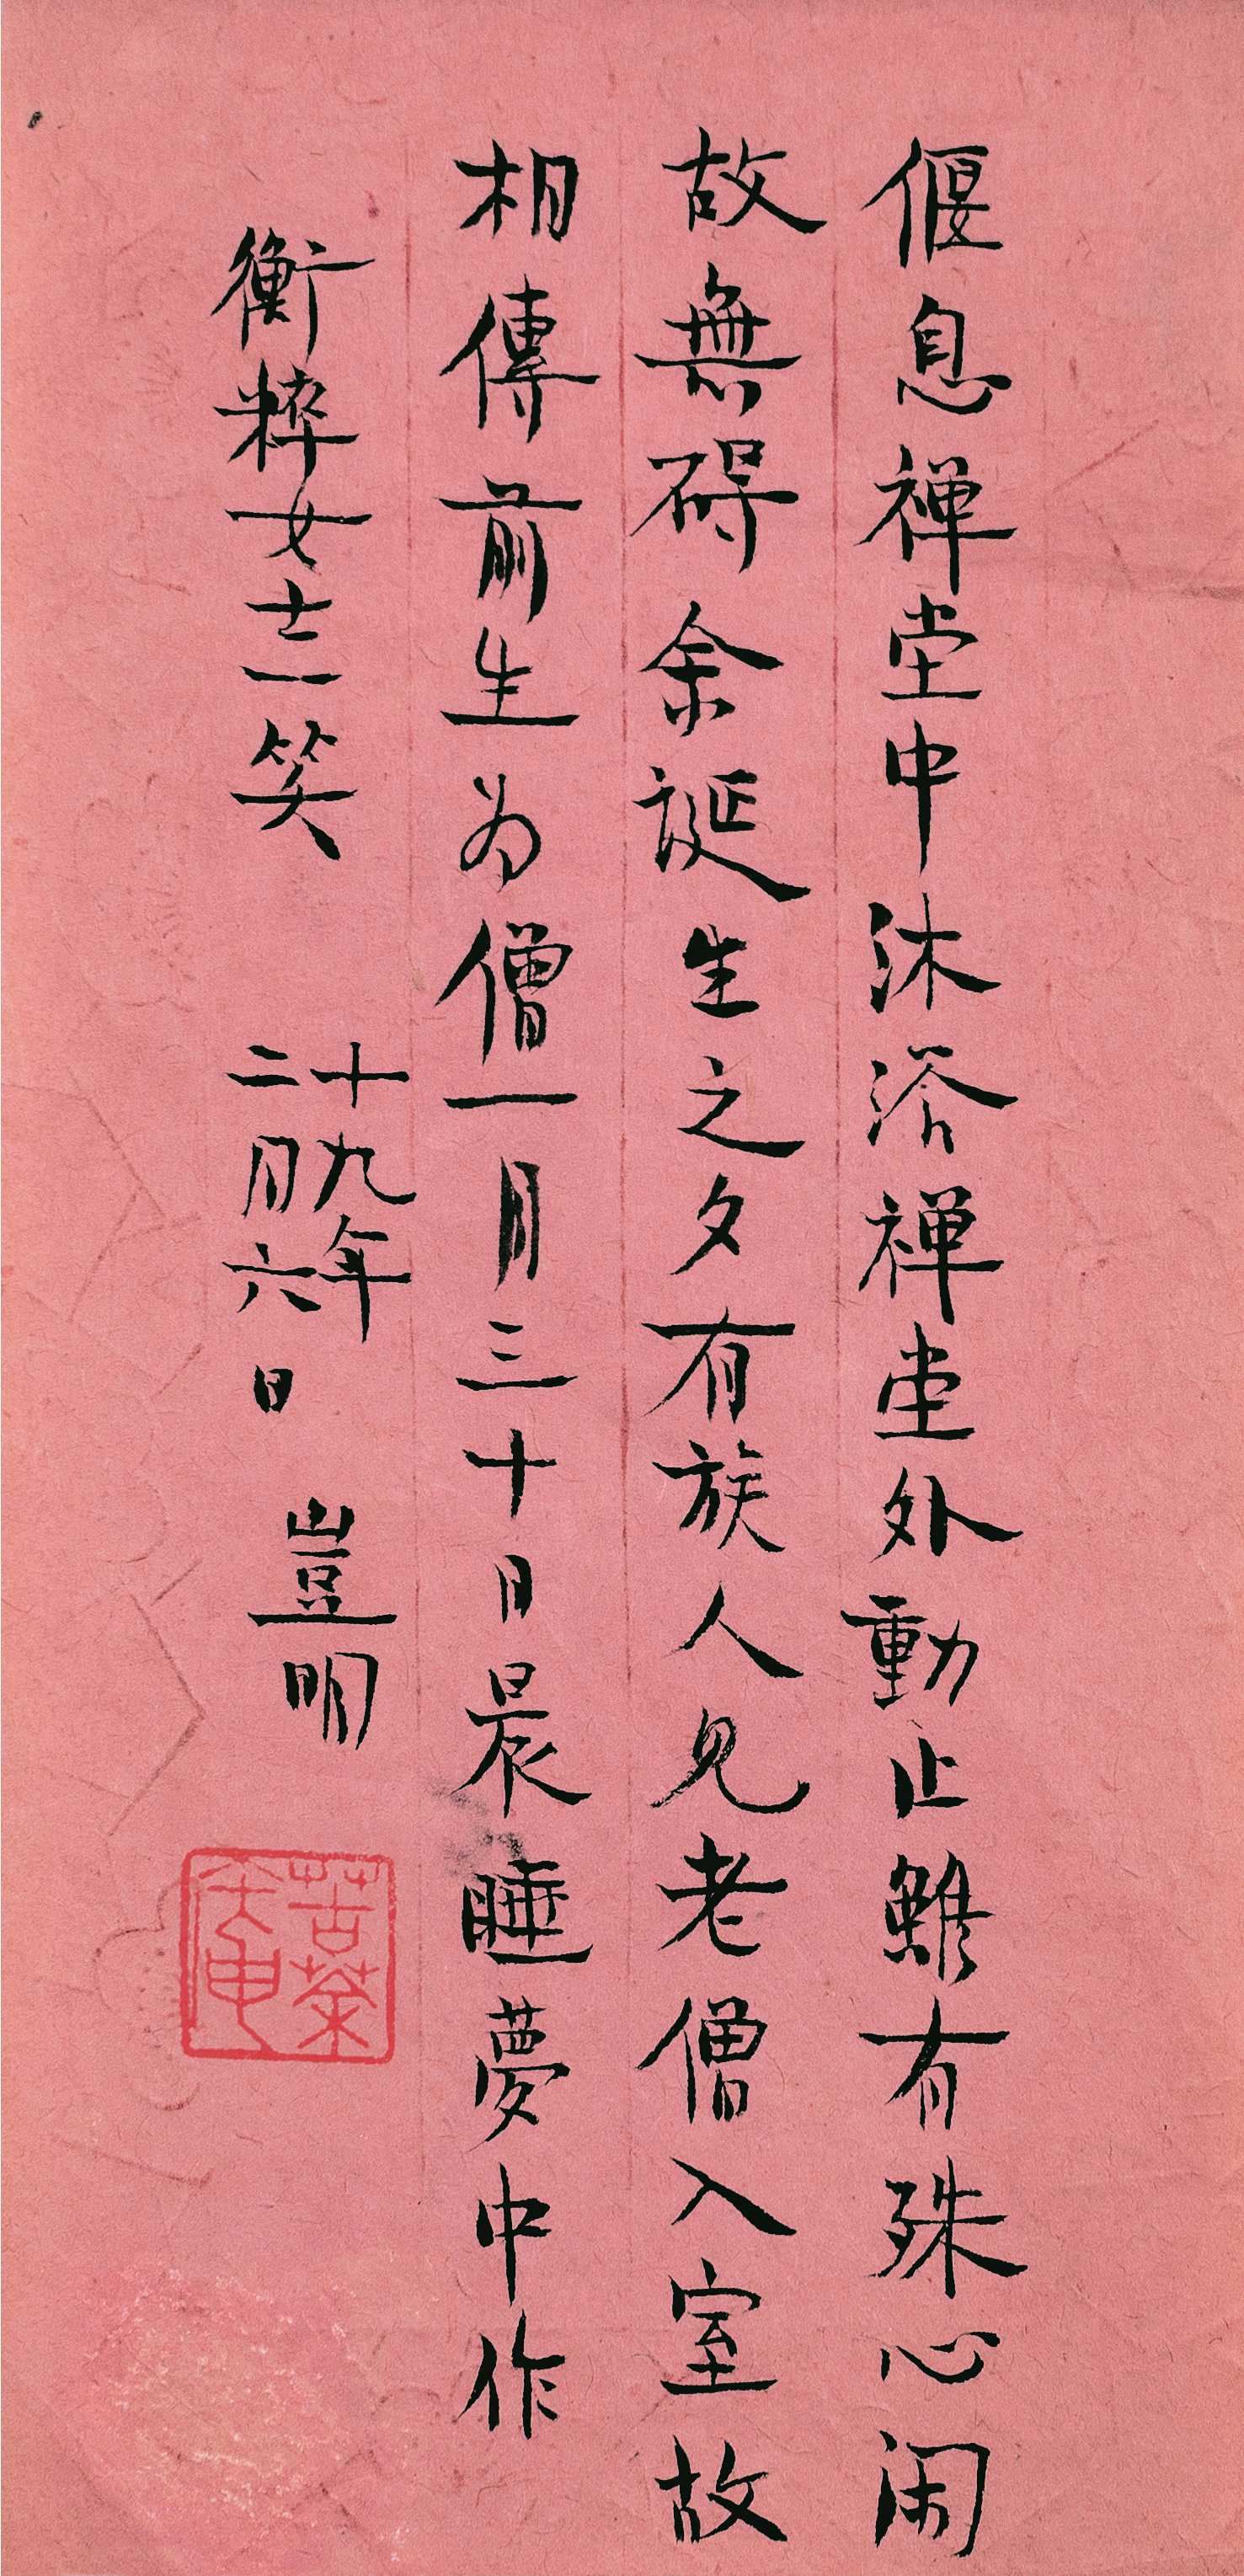 偃息禅堂中沐浴禅堂外動止雖有殊心闲
故無碍余誕生之夕有族人见老僧入室故
相傳前生为僧一月三十日晨睡夢中作
衡粹女士一笑
十九年
二月六日
豈明
苦茶
庵